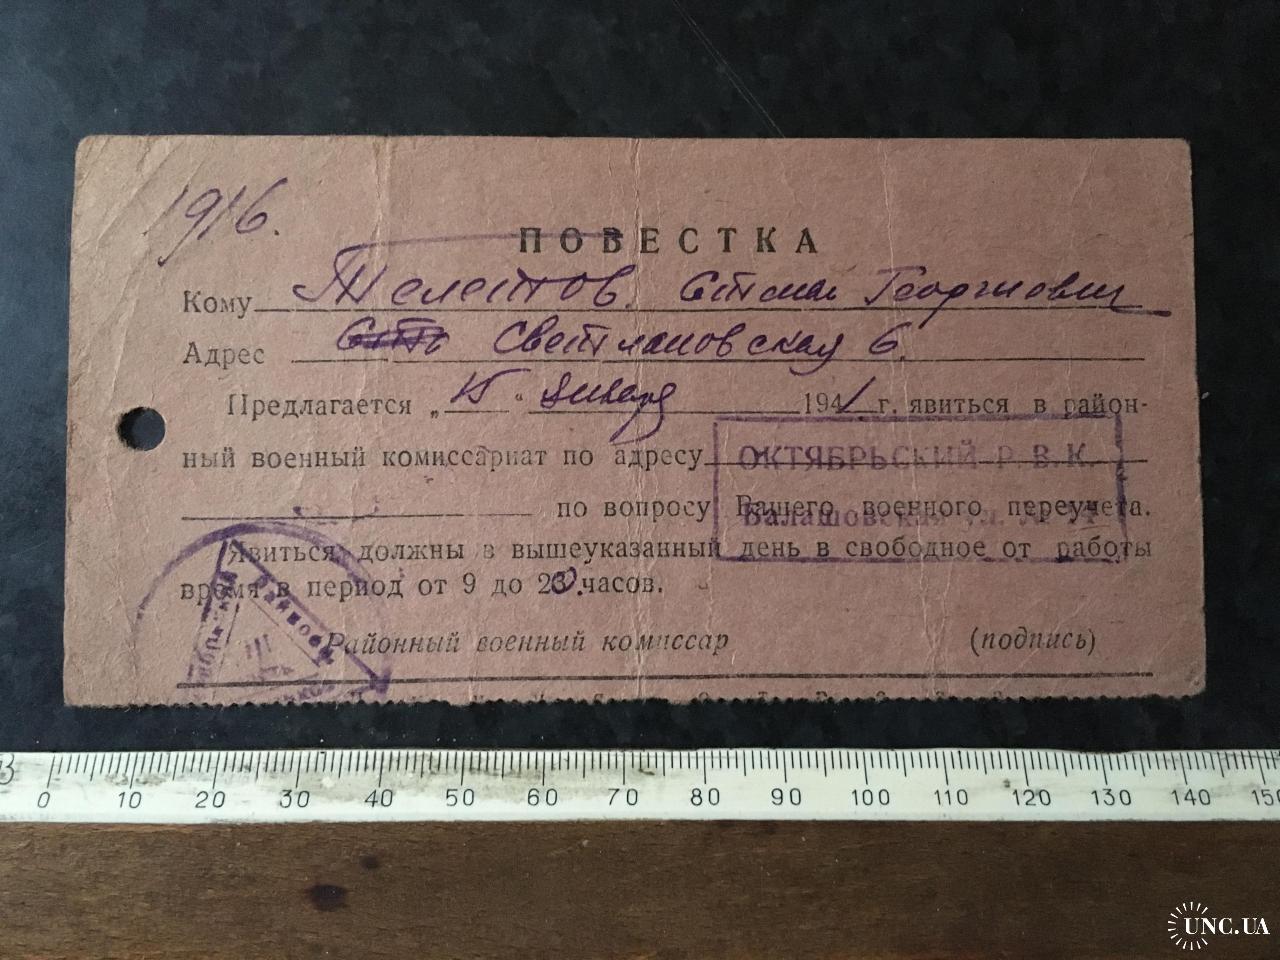 1916.
ПОВЕСТКА
Кому Телетов. Георгиевич
Адрес Светлановская 6.
Предлагается „15" января 1941 г. явиться в район-
ный военный комиссариат по адресу ОКТЯБРЬСКИЙ Р. В. К.
по вопросу Вашего военного переучета.
Балашовская ул.
Явиться должны в вышеуказанный день в свободное от работы
время в период от 9 до 20 часов.
Районный военный комиссар (подпись)
0 10 20 30 40 50 60 70 80 90 100 110 120 130 140 150
UNC.UA